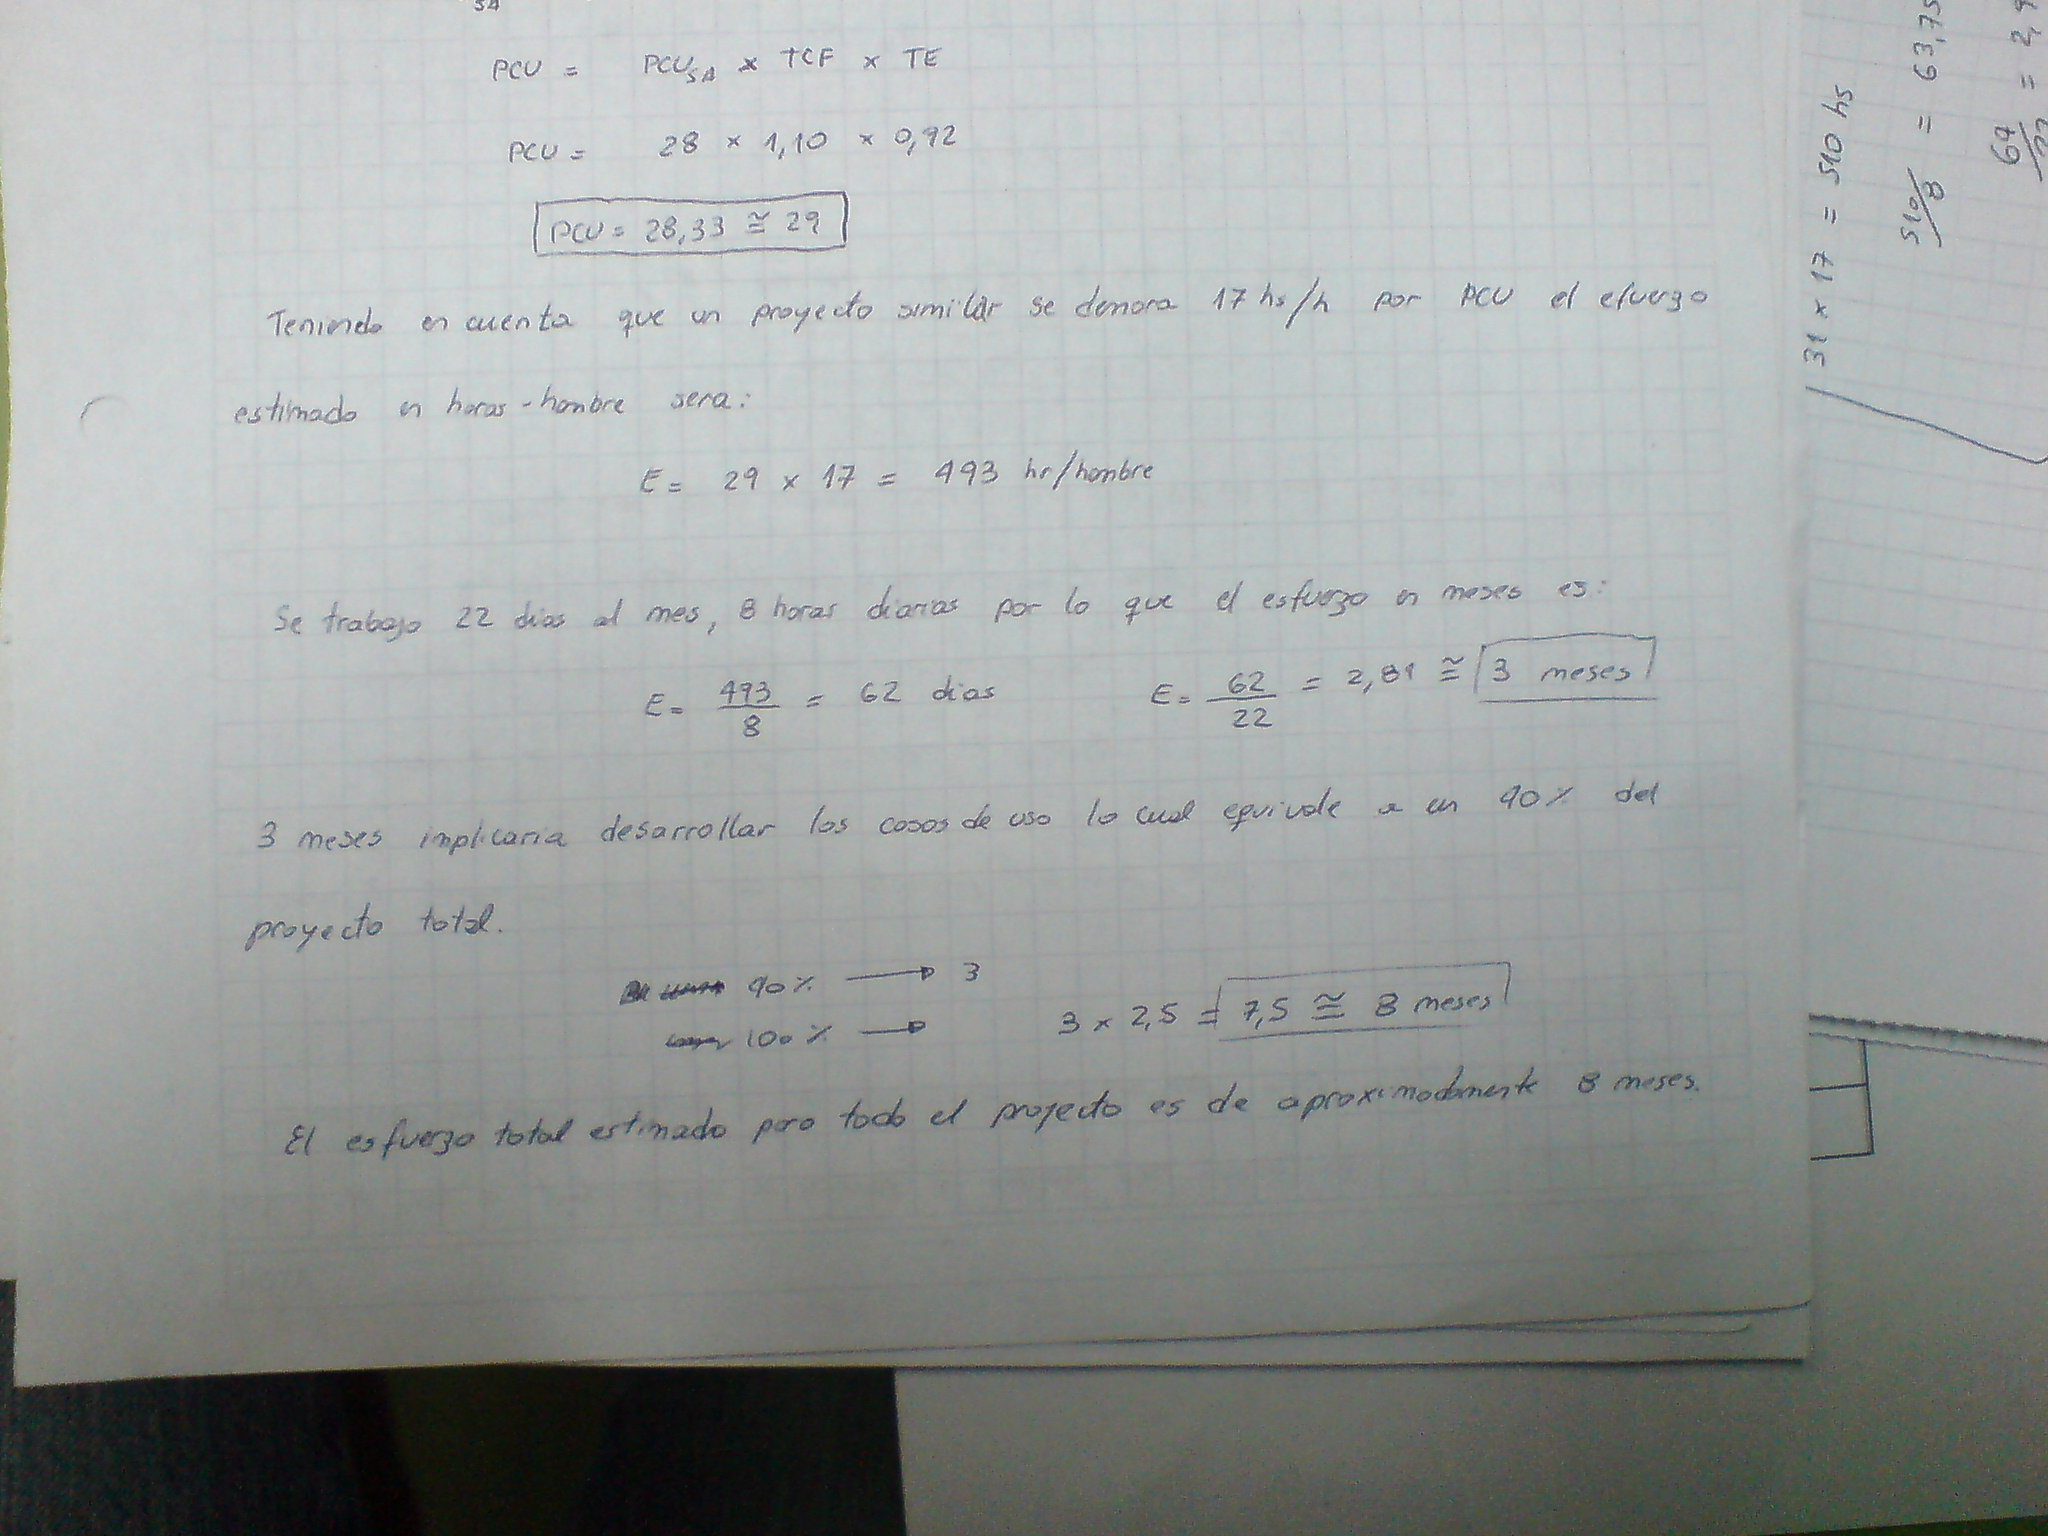 SA
PCU = PCU SA × TCF × TE
PCU = 28 × 1,10 × 0,92
PCU = 28,33 ≅ 29
Teniendo en cuenta que un proyecto similar se demora 17 hs/h por PCU el efuerzo
estimado en horas-hombre sera:
E= 29 × 17 = 493 hr/hombre
Se trabajo 22 dias al mes, 8 horas diarias por lo que el esfuerzo en meses es:
E= 493/8 = 62 dias E= 62/22 = 2,81 ≅ 3 meses
3 meses implicaria desarrollar los casos de uso lo cual equivale a un 40% del
proyecto total.
40% → 3
100% → 3 × 2,5 = 7,5 ≅ 8 meses
El esfuerzo total estimado para todo el proyecto es de aproximadamente 8 meses.
31 × 17 = 510 hs
510/8 = 63,75
64/22 = 2,9